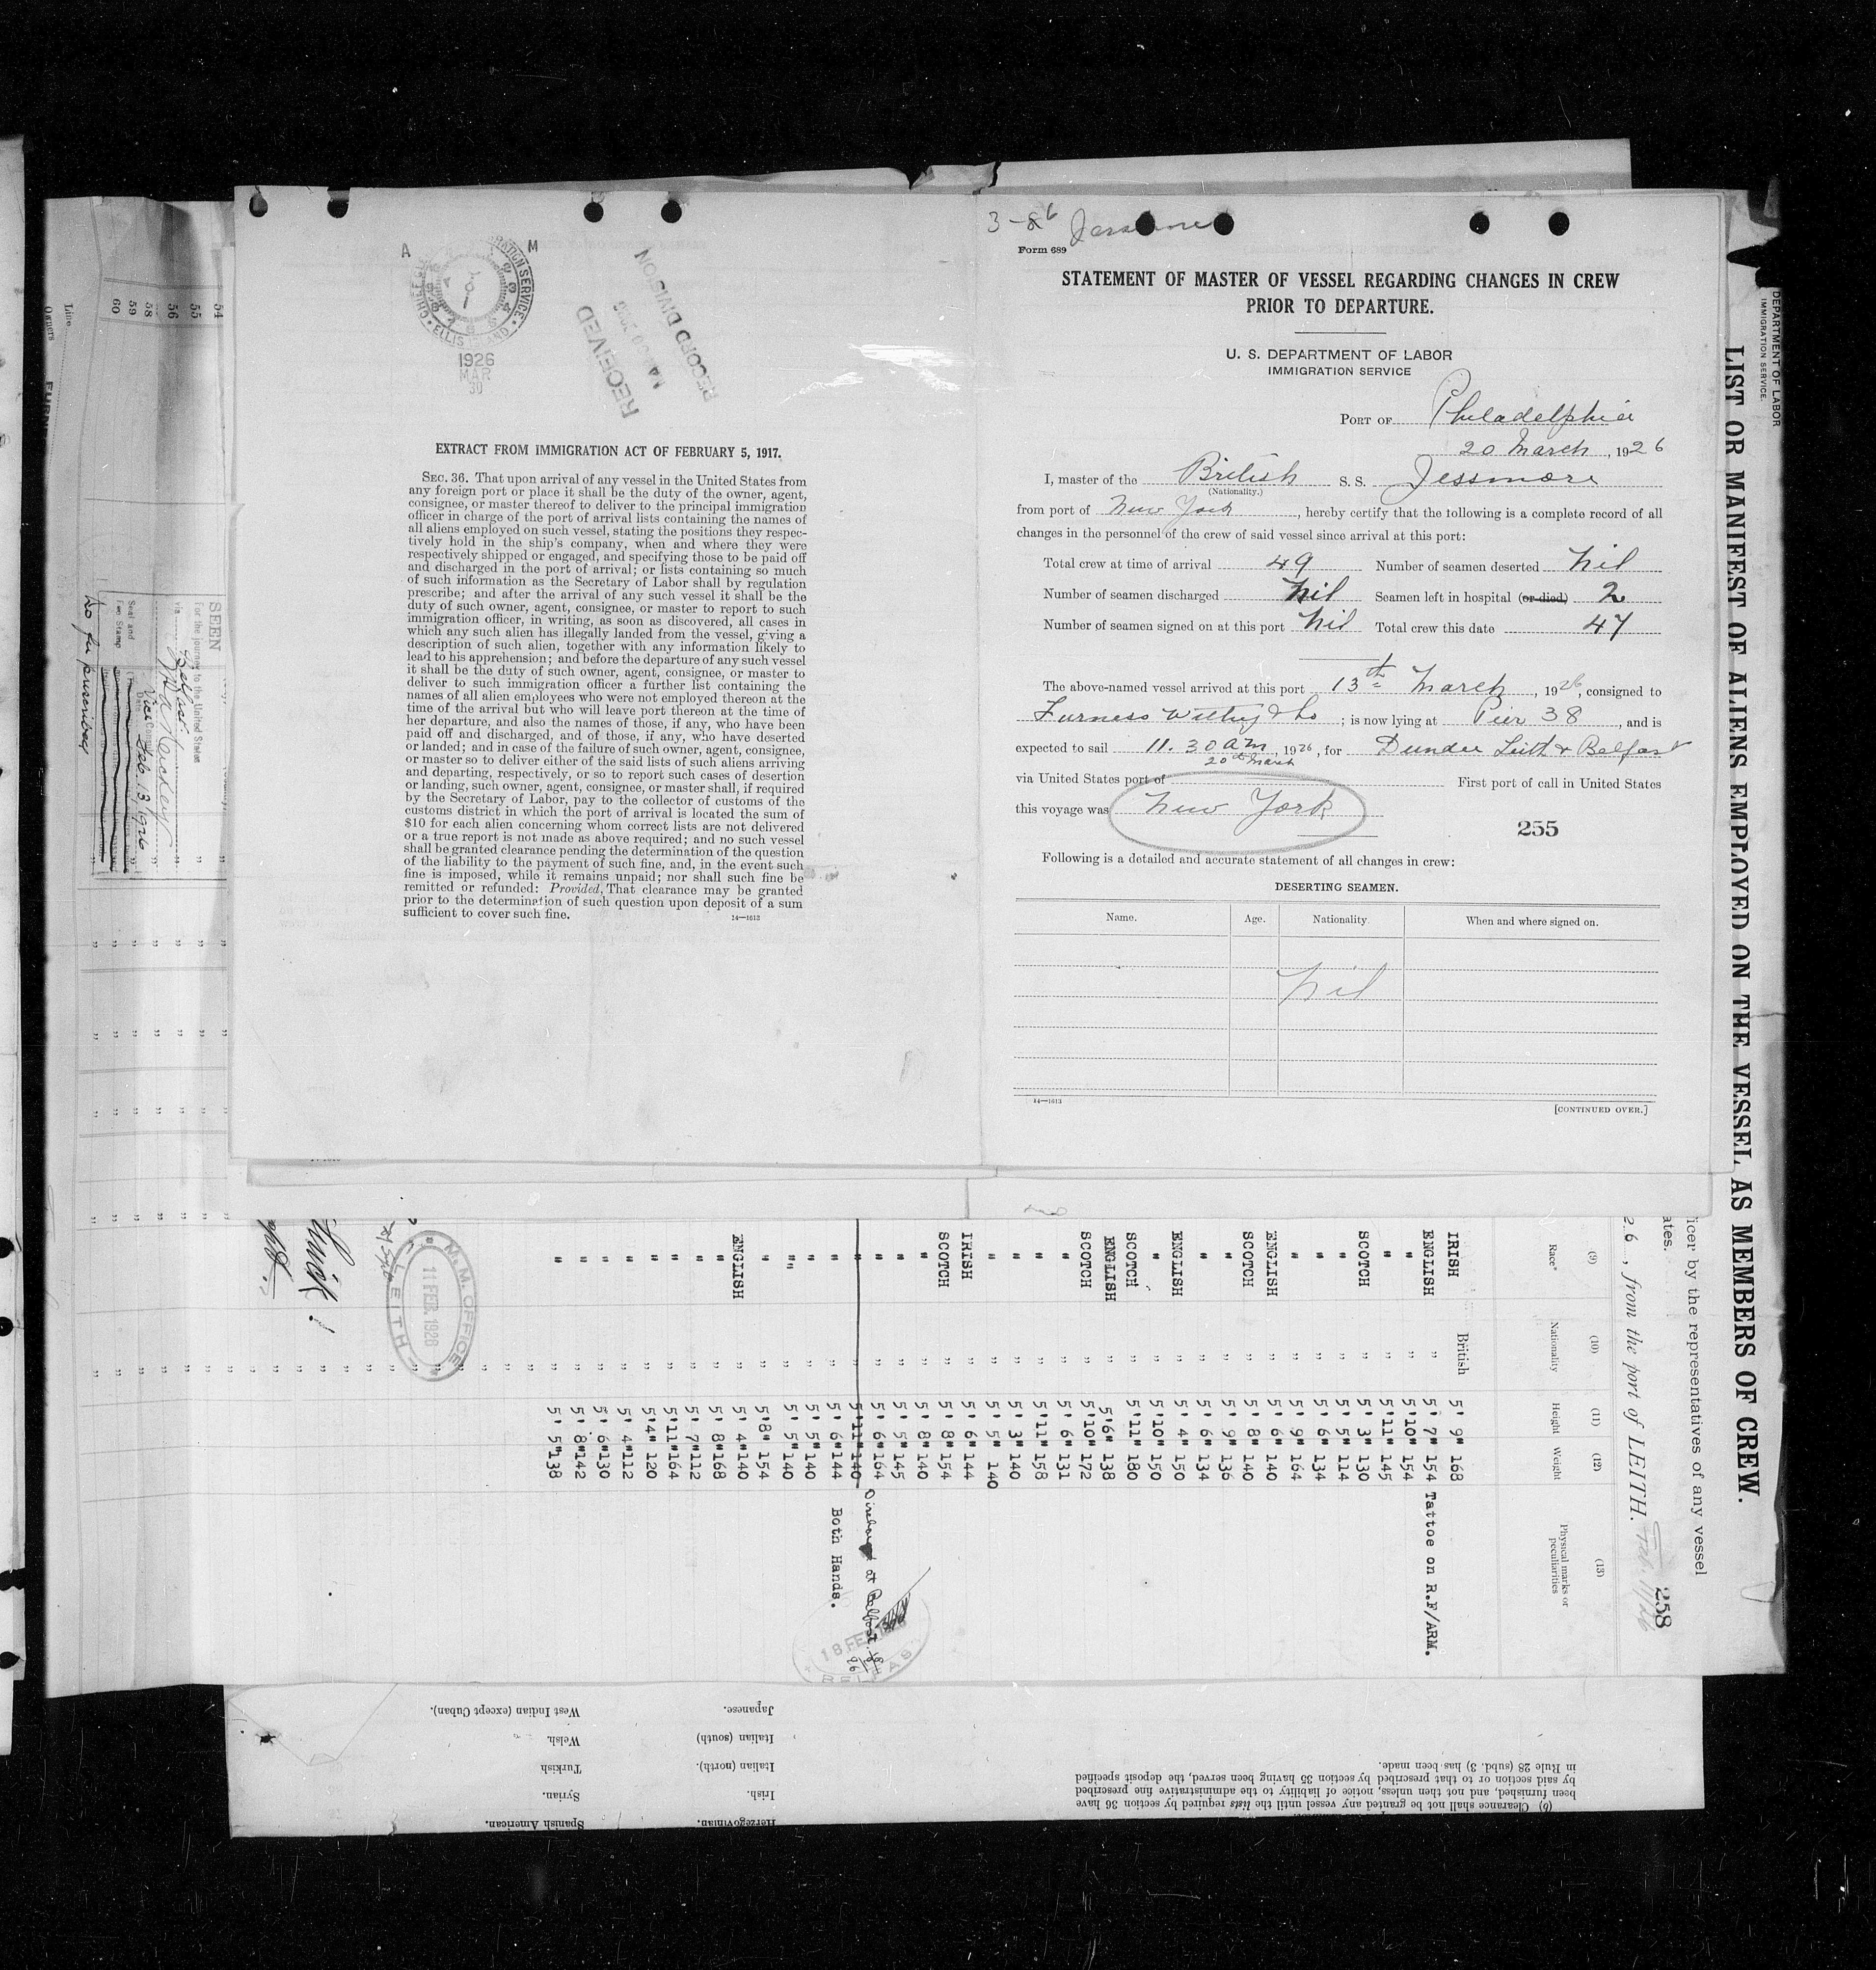 A M
IMMIGRATION SERVICE
ELLIS ISLAND
1926
MAR
30
RECEIVED
MAR 30 1926
RECORD DIVISION
EXTRACT FROM IMMIGRATION ACT OF FEBRUARY 5, 1917.
SEC. 36. That upon arrival of any vessel in the United States from
any foreign port or place it shall be the duty of the owner, agent,
consignee, or master thereof to deliver to the principal immigration
officer in charge of the port of arrival lists containing the names of
all aliens employed on such vessel, stating the positions they respec-
tively hold in the ship's company, when and where they were
respectively shipped or engaged, and specifying those to be paid off
and discharged in the port of arrival; or lists containing so much
of such information as the Secretary of Labor shall by regulation
prescribe; and after the arrival of any such vessel it shall be the
duty of such owner, agent, consignee, or master to report to such
immigration officer, in writing, as soon as discovered, all cases in
which any such alien has illegally landed from the vessel, giving a
description of such alien, together with any information likely to
lead to his apprehension; and before the departure of any such vessel
it shall be the duty of such owner, agent, consignee, or master to
deliver to such immigration officer a further list containing the
names of all alien employees who were not employed thereon at the
time of the arrival but who will leave port thereon at the time of
her departure, and also the names of those, if any, who have been
paid off and discharged, and of those, if any, who have deserted
or landed; and in case of the failure of such owner, agent, consignee,
or master so to deliver either of the said lists of such aliens arriving
and departing, respectively, or so to report such cases of desertion
or landing, such owner, agent, consignee, or master shall, if required
by the Secretary of Labor, pay to the collector of customs of the
customs district in which the port of arrival is located the sum of
$10 for each alien concerning whom correct lists are not delivered
or a true report is not made as above required; and no such vessel
shall be granted clearance pending the determination of the question
of the liability to the payment of such fine, and, in the event such
fine is imposed, while it remains unpaid; nor shall such fine be
remitted or refunded: Provided, That clearance may be granted
prior to the determination of such question upon deposit of a sum
sufficient to cover such fine.
14—1613
3-26 Jessmore
Form 689
STATEMENT OF MASTER OF VESSEL REGARDING CHANGES IN CREW
PRIOR TO DEPARTURE.
U. S. DEPARTMENT OF LABOR
IMMIGRATION SERVICE
PORT OF Philadelphia
20 March, 1926
I, master of the British S. S. Jessmore
(Nationality.)
from port of New York, hereby certify that the following is a complete record of all
changes in the personnel of the crew of said vessel since arrival at this port:
Total crew at time of arrival 49 Number of seamen deserted Nil
Number of seamen discharged Nil Seamen left in hospital (or died) 2
Number of seamen signed on at this port Nil Total crew this date 47
The above-named vessel arrived at this port 13th March, 1926, consigned to
Furness Withy & Co; is now lying at Pier 38, and is
expected to sail 11.30 am, 1926, for Dundee Leith & Belfast
20th March
via United States port of First port of call in United States
this voyage was New York
255
Following is a detailed and accurate statement of all changes in crew:
DESERTING SEAMEN.
Name. Age. Nationality. When and where signed on.
Nil
14—1613
[CONTINUED OVER.]
DEPARTMENT OF LABOR
IMMIGRATION SERVICE.
LIST OR MANIFEST OF ALIENS EMPLOYED ON THE VESSEL AS MEMBERS OF CREW.
ficer by the representatives of any vessel
ates.
26, from the port of LEITH. Feb. 11/26
258
(9) (10) (11) (12) (13)
Race* Nationality Height Weight Physical marks or
peculiarities
IRISH British 5' 9" 168
ENGLISH " 5' 7" 154 Tattoe on R.F/ARM.
" " 5'10" 154
" " 5'11" 145
SCOTCH " 5' 3" 130
" " 5' 5" 114
" " 5' 6" 134
" " 5' 9" 164
ENGLISH " 5' 6" 140
SCOTCH " 5' 8" 140
" " 5' 9" 136
" " 5' 6" 134
ENGLISH " 5' 4" 150
" " 5'10" 150
SCOTCH " 5'11" 180
ENGLISH " 5'6" 138
SCOTCH " 5'10" 172
" " 5' 6" 131
" " 5'11" 158
" " 5' 3" 140
" " 5' 5" 140
IRISH " 5' 6" 144
SCOTCH " 5' 8" 154
" " 5' 8" 140
" " 5' 5" 145
" " 5' 6" 164
" " 5'11" 140 Discharged at Belfast 18/2/26
" " 5' 6" 144 Both Hands.
" " 5' 5" 140
" " 5' 5" 140
" " 5'8" 154
ENGLISH " 5' 4" 140
" " 5' 8" 168
" " 5' 7" 112
" " 5'11" 164
" " 5'4" 120
" " 5' 4" 112
" " 5' 6" 130
" " 5' 8" 142
" " 5' 5" 138
18 FEB
BELFAST
M. M. OFFICE
11 FEB. 1926
LEITH
54
55
56
58
59
60
Line
Owners
SEEN
For the journey to the United States
via Belfast
Vice Consul
Date Feb. 13, 1926
Seal and
Fee Stamp
No fee prescribed
Japanese.
Italian (south)
Italian (north).
Irish.
Herzegovinian.
West Indian (except Cuban).
Welsh.
Turkish
Syrian.
Spanish American.
(b) Clearance shall not be granted any vessel until the lists required by section 36 have
been furnished, and not then unless, notice of liability to the administrative fine prescribed
by said section or to that prescribed by section 35 having been served, the deposit specified
in Rule 28 (subd. 3) has been made.